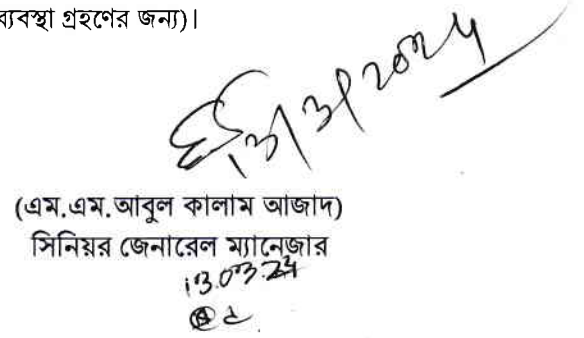 ব্যবস্থা গ্রহণের জন্য)।
(এম.এম.আবুল কালাম আজাদ)
সিনিয়র জেনারেল ম্যানেজার
13.03.24